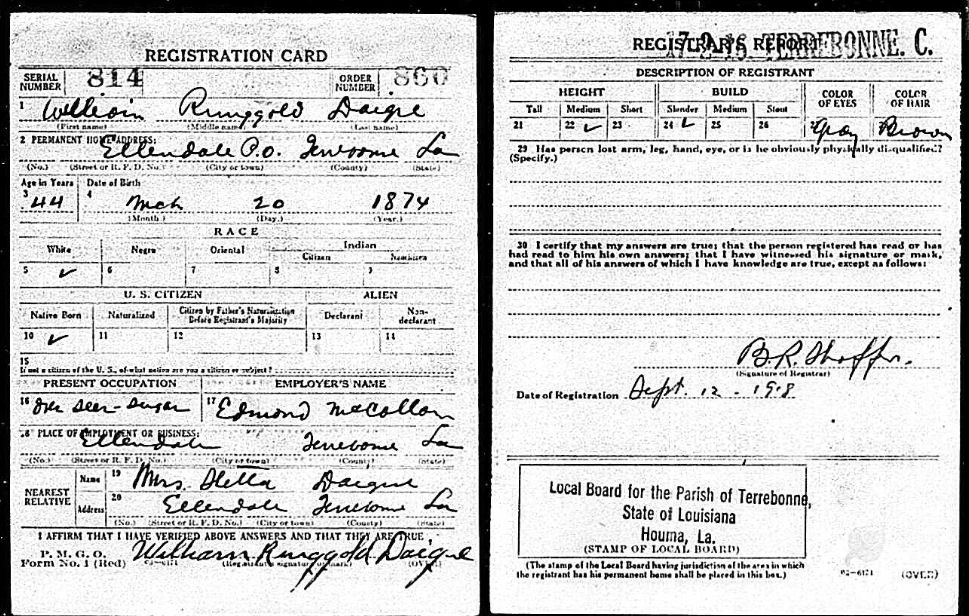 REGISTRATION CARD
SERIAL NUMBER 814 ORDER NUMBER 860
1 William Ringgold Daigre
(First name) (Middle name) (Last name)
2 PERMANENT HOME ADDRESS:
Ellendale P.O. Terrebonne La
(No.) (Street or R. F. D. No.) (City or town) (County) (State)
Age in Years Date of Birth
3 44 4 Mch 20 1874
(Month.) (Day.) (Year.)
RACE
White Negro Oriental Indian
Citizen Noncitizen
5 ✓ 6 7 8 9
U. S. CITIZEN ALIEN
Native Born Naturalized Citizen by Father's Naturalization Before Registrant's Majority Declarant Non-declarant
10 ✓ 11 12 13 14
15
If not a citizen of the U. S., of what nation are you a citizen or subject?
PRESENT OCCUPATION EMPLOYER'S NAME
16 Over Seer-Sugar 17 Edmond McCollam
18 PLACE OF EMPLOYMENT OR BUSINESS:
Ellendale Terrebonne La
(No.) (Street or R. F. D. No.) (City or town) (County) (State)
NEAREST RELATIVE
Name 19 Mrs. Daigre
Address 20 Ellendale Terrebonne La
(No.) (Street or R. F. D. No.) (City or town) (County) (State)
I AFFIRM THAT I HAVE VERIFIED ABOVE ANSWERS AND THAT THEY ARE TRUE
P. M. G. O.
Form No. 1 (Red) 03-6171 William Ringgold Daigre
(Registrant's signature or mark) (OVER)
REGISTRAR'S REPORT
TERREBONNE. C.
DESCRIPTION OF REGISTRANT
HEIGHT BUILD COLOR OF EYES COLOR OF HAIR
Tall Medium Short Slender Medium Stout
21 22 ✓ 23 24 ✓ 25 26 Gray Brown
29 Has person lost arm, leg, hand, eye, or is he obviously physically disqualified?
(Specify.)
30 I certify that my answers are true; that the person registered has read or has
had read to him his own answers; that I have witnessed his signature or mark,
and that all of his answers of which I have knowledge are true, except as follows:
B.R.
(Signature of Registrar)
Date of Registration Sept. 12 - 1918
Local Board for the Parish of Terrebonne,
State of Louisiana
Houma, La.
(STAMP OF LOCAL BOARD)
(The stamp of the Local Board having jurisdiction of the area in which
the registrant has his permanent home shall be placed in this box.)
03-6171 (OVER)